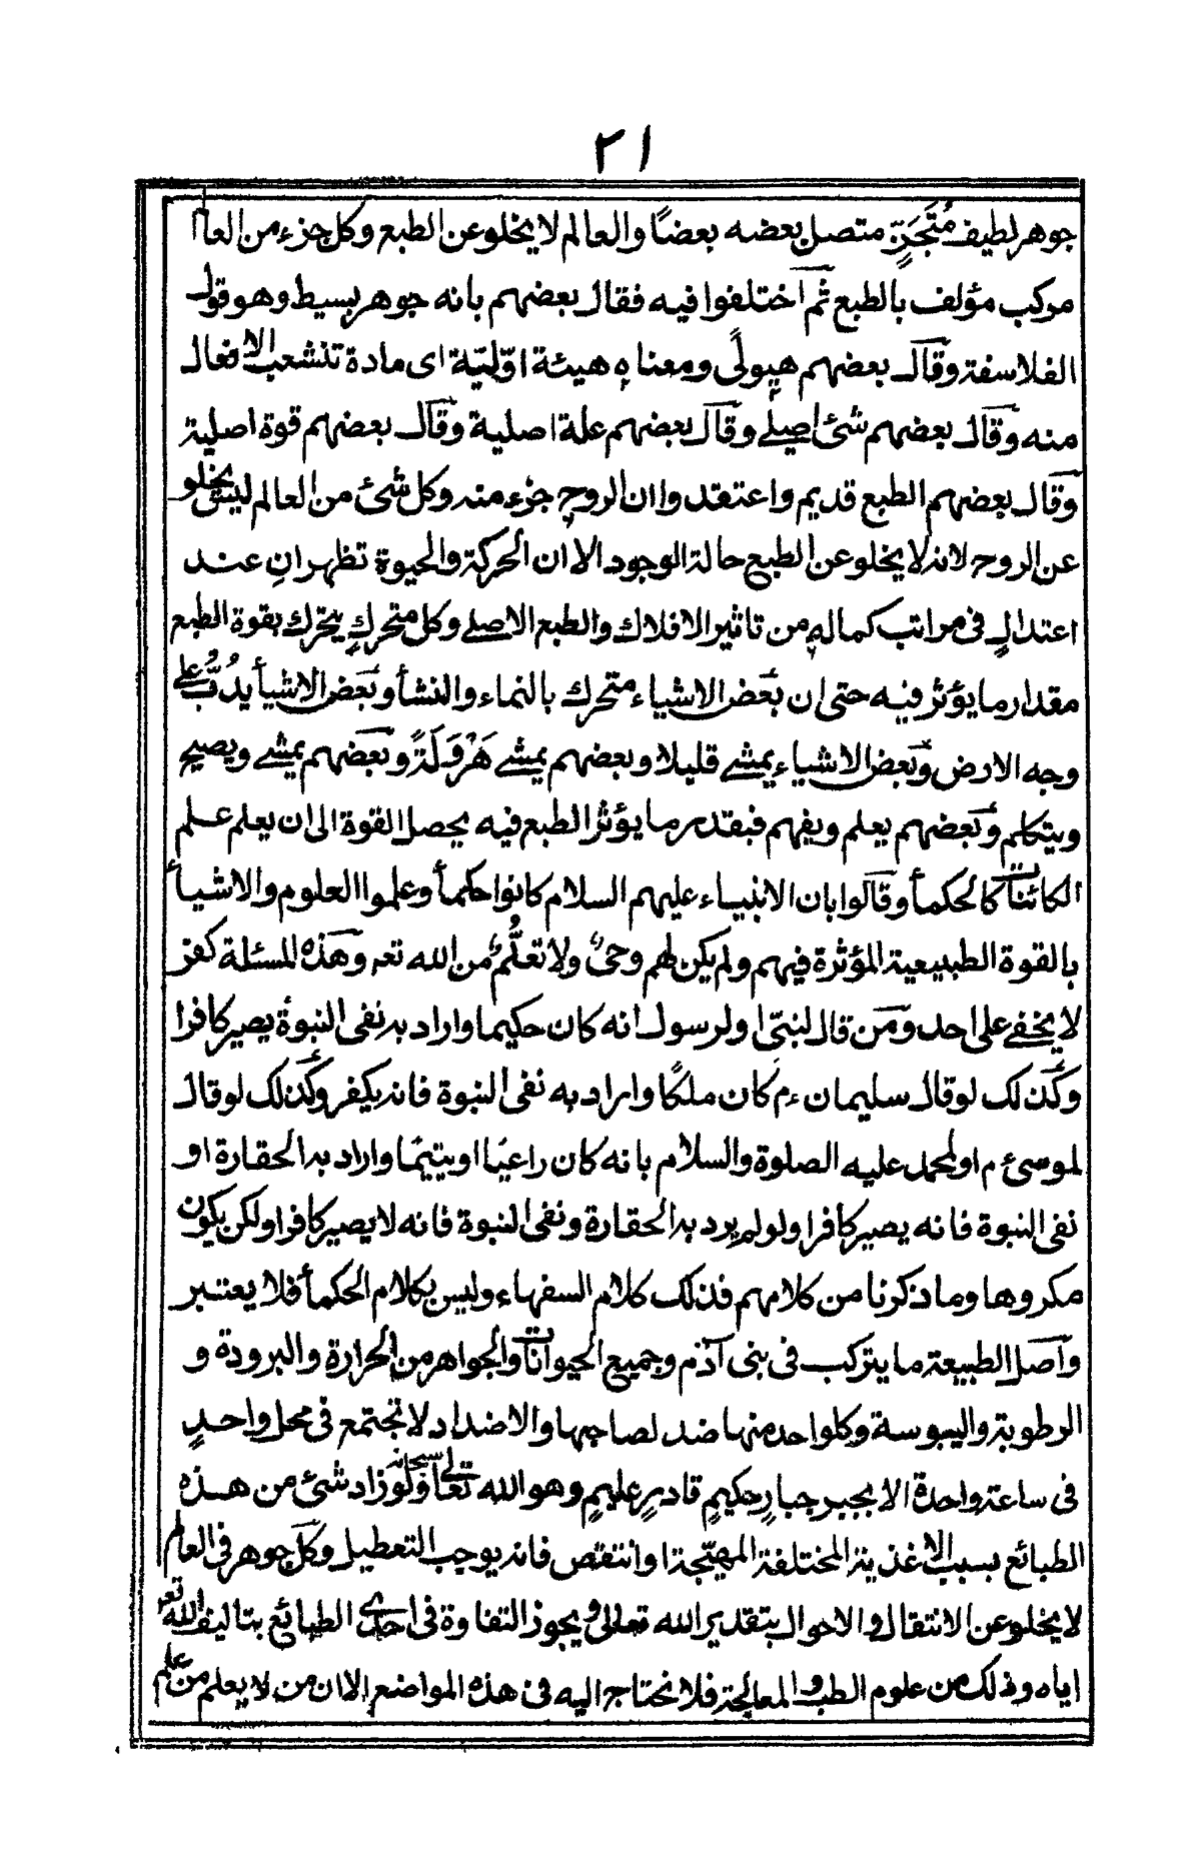 ٢١
جوهر لطيف مُتَجَزٍّ متصل بعضه بعضًا والعالم لا يخلو عن الطبع وكل جزء من العالم
مركب مؤلف بالطبع ثم اختلفوا فيه فقال بعضهم بانه جوهر بسيط وهو قول
الفلاسفة وقال بعضهم هيولًى ومعناه هيئة اوّليّة اى مادة تنشعب الافعال
منه وقال بعضهم شئ اصلے وقال بعضهم علة اصلية وقال بعضهم قوة اصلية
وقال بعضهم الطبع قديم واعتقدوا ان الروح جزء منه وكل شئ من العالم ليس يخلو
عن الروح لانه لا يخلو عن الطبع حالة الوجود الا ان الحركة والحيوة تظهرانِ عند
اعتدالٍ فى مراتب كماله من تاثير الافلاك والطبع الاصلے وكل متحركٍ يتحرك بقوة الطبع
مقدار ما يؤثر فيه حتى ان بعض الاشياء متحرك بالنماء والنشأ وبعض الاشيأ يدُبُّ على
وجه الارض وبعض الاشياء يمشے قليلا وبعضهم يمشے هَرْوَلَةً وبعضهم يمشے ويصيح
ويتكلم وبعضهم يعلم ويفهم فبقدر ما يؤثر الطبع فيه يحصل القوة الى ان يعلم علم
الكائنات كالحكمأ وقالوا بان الانبياء عليهم السلام كانوا حكمأ وعلموا العلوم والاشيأ
بالقوة الطبيعية المؤثرة فيهم ولم يكن لهم وحىٌ ولا تعلُّمٌ من الله تعہ وهذه المسئلة كفر
لا يخفے على احد ومن قال لنبىّ او لرسول انه كان حكيما واراد به نفى النبوة يصير كافرا
وكذلك لو قال سليمان ءم كان ملكًا واراد به نفى النبوة فانه يكفر وكذلك لو قال
لموسى ءم او لمحمد عليه الصلوة والسلام بانه كان راعيًا او يتيمًا واراد به الحقارة او
نفى النبوة فانه يصير كافرا ولو لم يرد به الحقارة ونفى النبوة فانه لا يصير كافرا ولكن يكون
مكروها وما ذكرنا من كلامهم فذلك كلام السفهاء وليس بكلام الحكمأ فلا يعتبر
واصل الطبيعة ما يتركب فى بنى آدم وجميع الحيوانات والجواهر من الحرارة والبرودة و
الرطوبة واليبوسة وكل واحد منها ضد لصاحبها والاضداد لا تجتمع فى محل واحدٍ
فى ساعة واحدة الا بجبر جبارٍ حكيمٍ قادرٍ عليمٍ وهو الله سبحانه تعالى ولو زاد شئ من هذه
الطبائع بسبب الاغذية المختلفة المهيّجة او انتقص فانه يوجب التعطيل وكل جوهر فى العالم
لا يخلو عن الانتقال والاحوال بتقدير الله تعالى ويجوز التفاوة فى احدى الطبائع بتاليف الله تعہ
اياه وذلك من علوم الطب والمعالجة فلا نحتاج اليه فى هذه المواضع الا ان من لا يعلم من علم